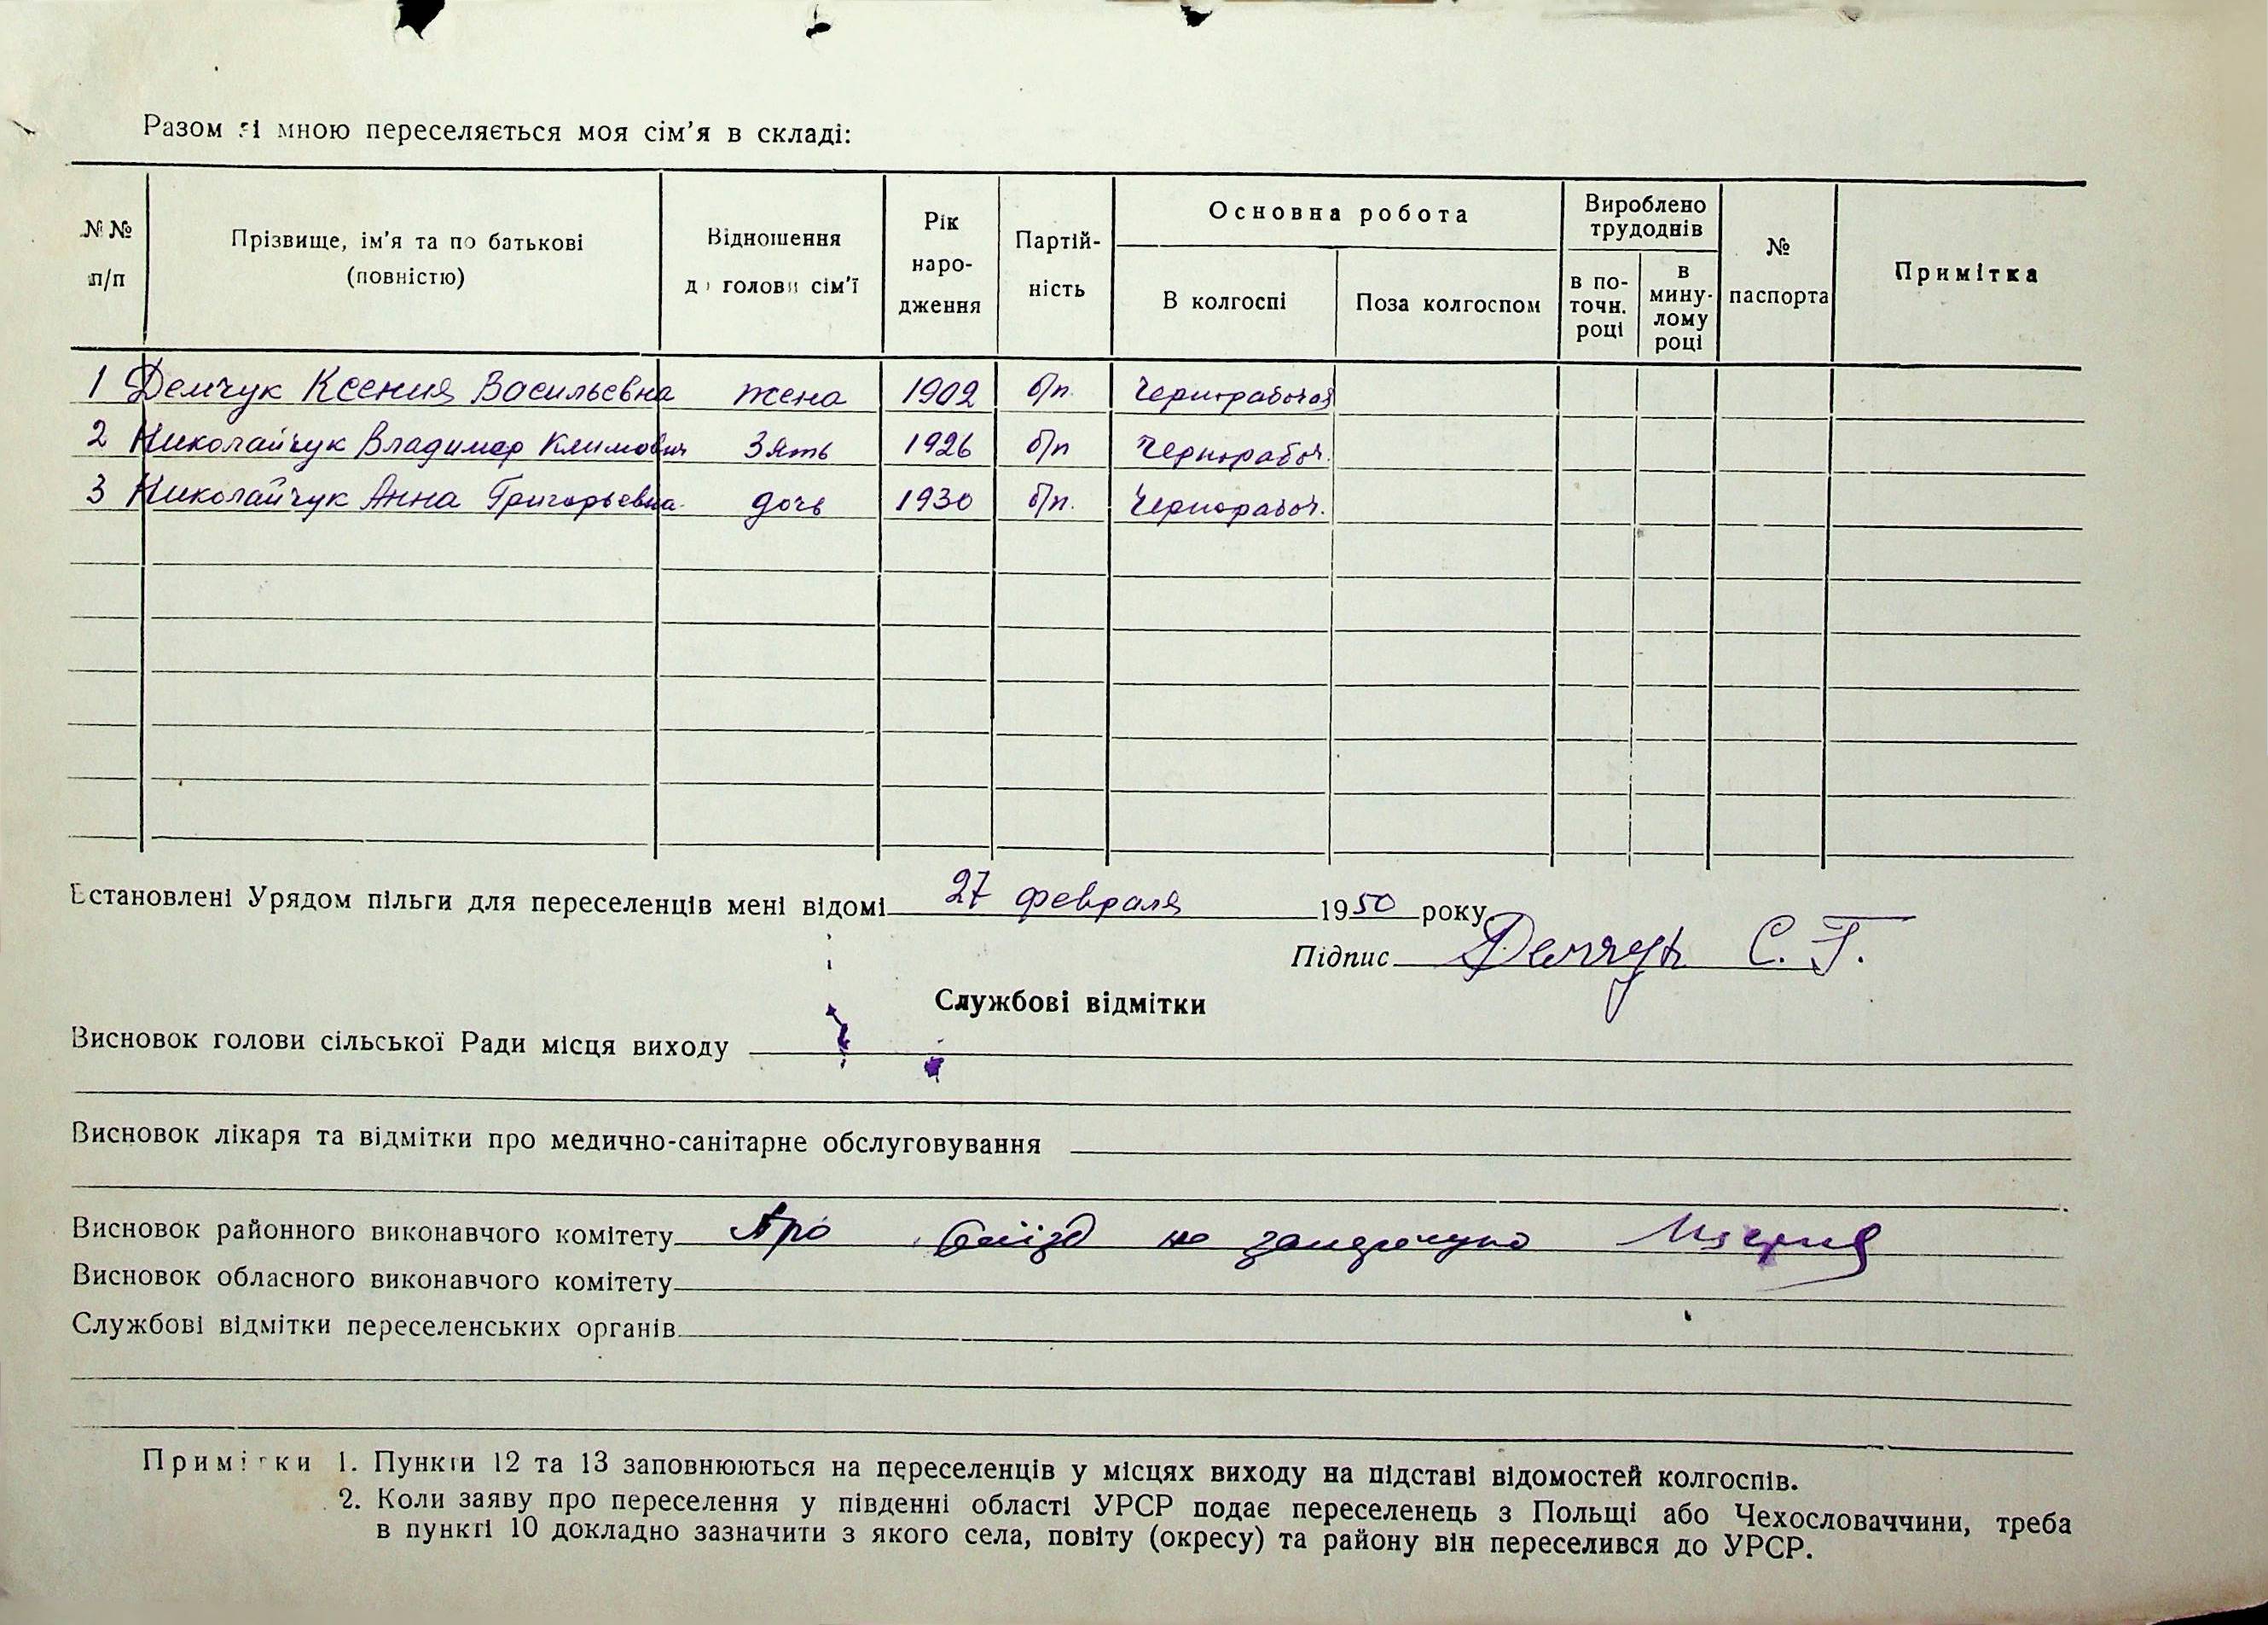 Разом зі мною переселяється моя сім'я в складі:
№ № п/п
Прізвище, ім'я та по батькові (повністю)
Відношення до голови сім'ї
Рік народження
Партійність
Основна робота
В колгоспі
Поза колгоспом
Вироблено трудоднів
в поточн. році
в минулому році
№ паспорта
Примітка
1 Демчук Ксения Васильевна жена 1902 б/п. Чернорабочая
2 Николайчук Владимир Климович Зять 1926 б/п Чернорабоч.
3 Николайчук Анна Григорьевна дочь 1930 б/п. Чернорабоч.
Встановлені Урядом пільги для переселенців мені відомі 27 февраля 1950 року
Підпис Демчук С. Г.
Службові відмітки
Висновок голови сільської Ради місця виходу
Висновок лікаря та відмітки про медично-санітарне обслуговування
Висновок районного виконавчого комітету Про виїзд не заперечуно
Висновок обласного виконавчого комітету
Службові відмітки переселенських органів
Примітки 1. Пункти 12 та 13 заповнюються на переселенців у місцях виходу на підставі відомостей колгоспів.
2. Коли заяву про переселення у південні області УРСР подає переселенець з Польщі або Чехословаччини, треба
в пункті 10 докладно зазначити з якого села, повіту (окресу) та району він переселився до УРСР.